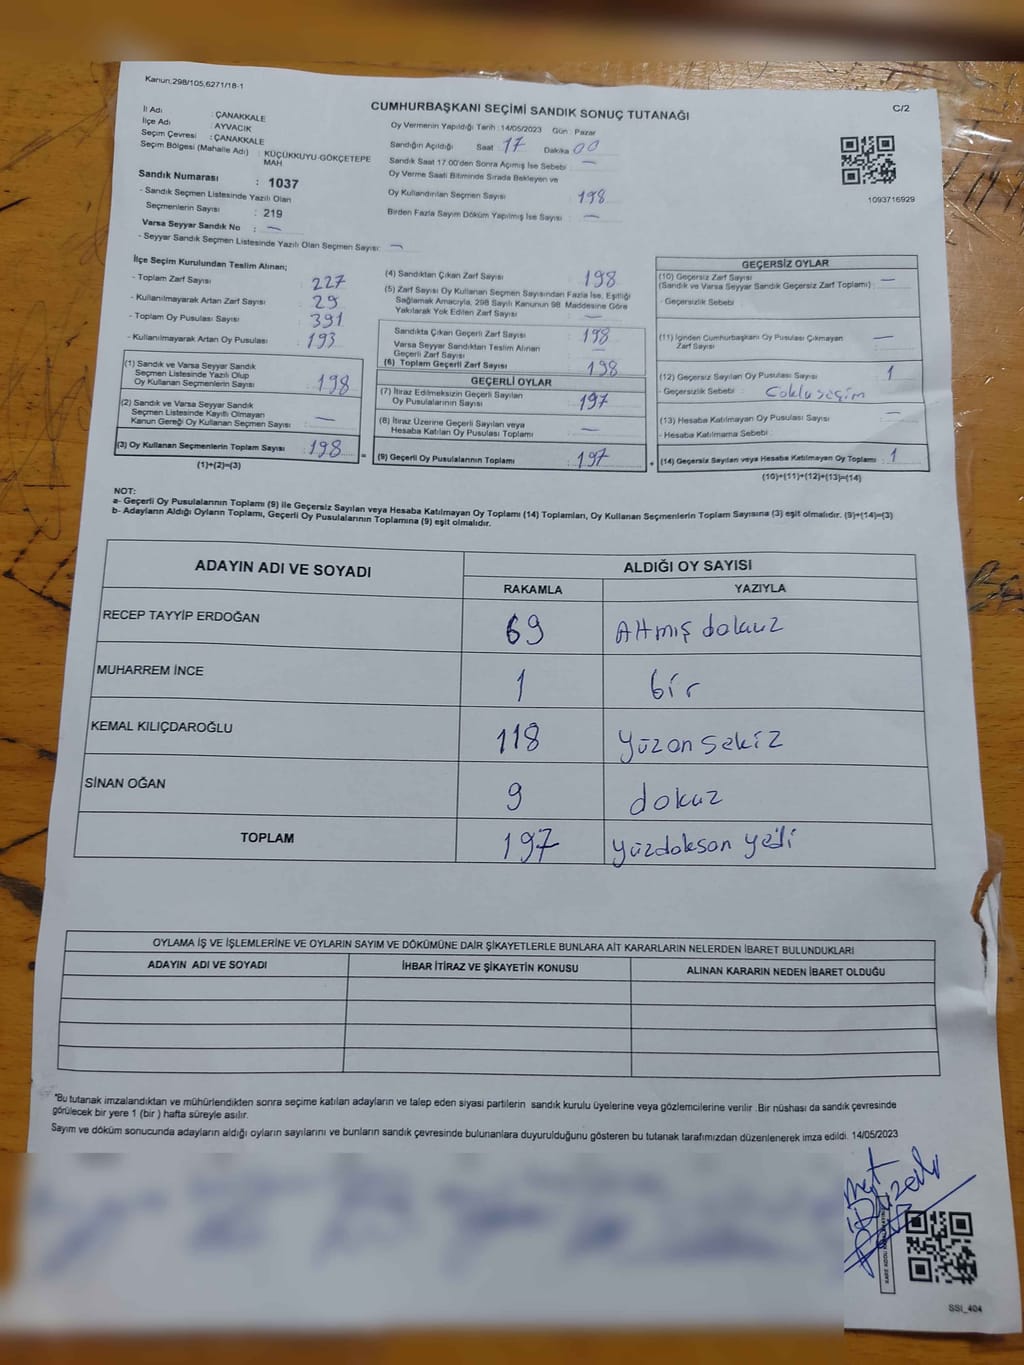 Kanun,298/105,6271/18-1
CUMHURBAŞKANI SEÇİMİ SANDIK SONUÇ TUTANAĞI
C/2
İl Adı : ÇANAKKALE
İlçe Adı : AYVACIK
Seçim Çevresi : ÇANAKKALE
Seçim Bölgesi (Mahalle Adı) : KÜÇÜKKUYU-GÖKÇETEPE MAH
Sandık Numarası : 1037
- Sandık Seçmen Listesinde Yazılı Olan
Seçmenlerin Sayısı : 219
Varsa Seyyar Sandık No : —
- Seyyar Sandık Seçmen Listesinde Yazılı Olan Seçmen Sayısı: —
Oy Vermenin Yapıldığı Tarih : 14/05/2023 Gün : Pazar
Sandığın Açıldığı Saat 17 Dakika 00
Sandık Saat 17.00'den Sonra Açılmış İse Sebebi : —
Oy Verme Saati Bitiminde Sırada Bekleyen ve
Oy Kullandırılan Seçmen Sayısı : 198
Birden Fazla Sayım Döküm Yapılmış İse Sayısı : —
1093716929
İlçe Seçim Kurulundan Teslim Alınan;
- Toplam Zarf Sayısı : 227
- Kullanılmayarak Artan Zarf Sayısı : 29
- Toplam Oy Pusulası Sayısı : 391
- Kullanılmayarak Artan Oy Pusulası : 193
(1) Sandık ve Varsa Seyyar Sandık
Seçmen Listesinde Yazılı Olup
Oy Kullanan Seçmenlerin Sayısı : 198
(2) Sandık ve Varsa Seyyar Sandık
Seçmen Listesinde Kayıtlı Olmayan
Kanun Gereği Oy Kullanan Seçmen Sayısı : —
(3) Oy Kullanan Seçmenlerin Toplam Sayısı : 198
(1)+(2)=(3)
(4) Sandıktan Çıkan Zarf Sayısı : 198
(5) Zarf Sayısı Oy Kullanan Seçmen Sayısından Fazla İse, Eşitliği
Sağlamak Amacıyla, 298 Sayılı Kanunun 98 Maddesine Göre
Yakılarak Yok Edilen Zarf Sayısı : —
Sandıkta Çıkan Geçerli Zarf Sayısı : 198
Varsa Seyyar Sandıktan Teslim Alınan
Geçerli Zarf Sayısı : —
(6) Toplam Geçerli Zarf Sayısı : 198
GEÇERLİ OYLAR
(7) İtiraz Edilmeksizin Geçerli Sayılan
Oy Pusulalarının Sayısı : 197
(8) İtiraz Üzerine Geçerli Sayılan veya
Hesaba Katılan Oy Pusulası Toplamı : —
(9) Geçerli Oy Pusulalarının Toplamı : 197
GEÇERSİZ OYLAR
(10) Geçersiz Zarf Sayısı
(Sandık ve Varsa Seyyar Sandık Geçersiz Zarf Toplamı) : —
- Geçersizlik Sebebi :
(11) İçinden Cumhurbaşkanı Oy Pusulası Çıkmayan
Zarf Sayısı : —
(12) Geçersiz Sayılan Oy Pusulası Sayısı : 1
- Geçersizlik Sebebi : Çoklu seçim
(13) Hesaba Katılmayan Oy Pusulası Sayısı : —
- Hesaba Katılmama Sebebi :
(14) Geçersiz Sayılan veya Hesaba Katılmayan Oy Toplamı : 1
(10)+(11)+(12)+(13)=(14)
NOT:
a- Geçerli Oy Pusulalarının Toplamı (9) ile Geçersiz Sayılan veya Hesaba Katılmayan Oy Toplamı (14) Toplamları, Oy Kullanan Seçmenlerin Toplam Sayısına (3) eşit olmalıdır. (9)+(14)=(3)
b- Adayların Aldığı Oyların Toplamı, Geçerli Oy Pusulalarının Toplamına (9) eşit olmalıdır.
ADAYIN ADI VE SOYADI ALDIĞI OY SAYISI
RAKAMLA YAZIYLA
RECEP TAYYİP ERDOĞAN 69 Altmış dokuz
MUHARREM İNCE 1 bir
KEMAL KILIÇDAROĞLU 118 Yüzon sekiz
SİNAN OĞAN 9 dokuz
TOPLAM 197 Yüzdoksan yedi
OYLAMA İŞ VE İŞLEMLERİNE VE OYLARIN SAYIM VE DÖKÜMÜNE DAİR ŞİKAYETLERLE BUNLARA AİT KARARLARIN NELERDEN İBARET BULUNDUKLARI
ADAYIN ADI VE SOYADI İHBAR İTİRAZ VE ŞİKAYETİN KONUSU ALINAN KARARIN NEDEN İBARET OLDUĞU
*Bu tutanak imzalandıktan ve mühürlendikten sonra seçime katılan adayların ve talep eden siyasi partilerin sandık kurulu üyelerine veya gözlemcilerine verilir .Bir nüshası da sandık çevresinde
görülecek bir yere 1 (bir ) hafta süreyle asılır.
Sayım ve döküm sonucunda adayların aldığı oyların sayılarını ve bunların sandık çevresinde bulunanlara duyurulduğunu gösteren bu tutanak tarafımızdan düzenlenerek imza edildi. 14/05/2023
SSI_404